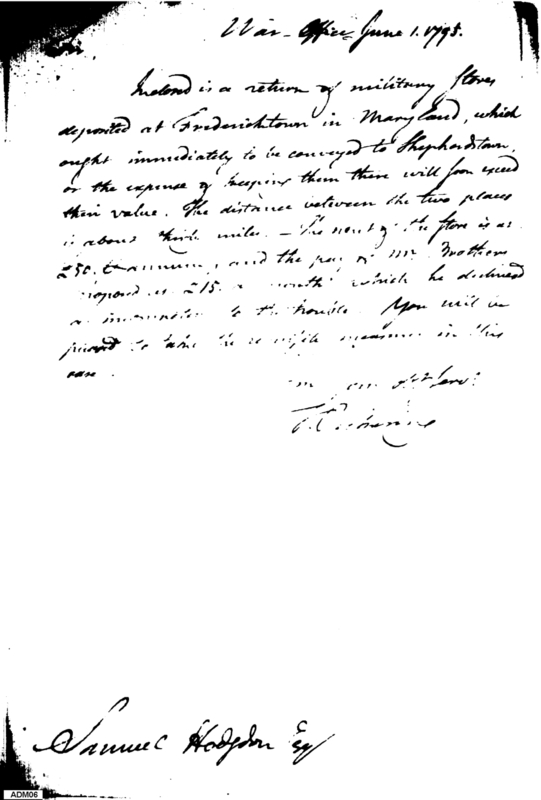 War-Office June 1. 1795.
Inclosed is a return of military Stores
deposited at Fredericktown in Maryland, which
ought immediately to be conveyed to Shepherdstown,
or the expense of keeping them there will soon exceed
their value. The distance between the two places
is about miles. - The rent of the Store is at
£50. annum, and the pay of Mr. Brothers
proposed is £15. a month which he declined
to the trouble. You will be
pleased to take the measures in this
case.
Servt
Samuel Hodgdon Esq
ADM06